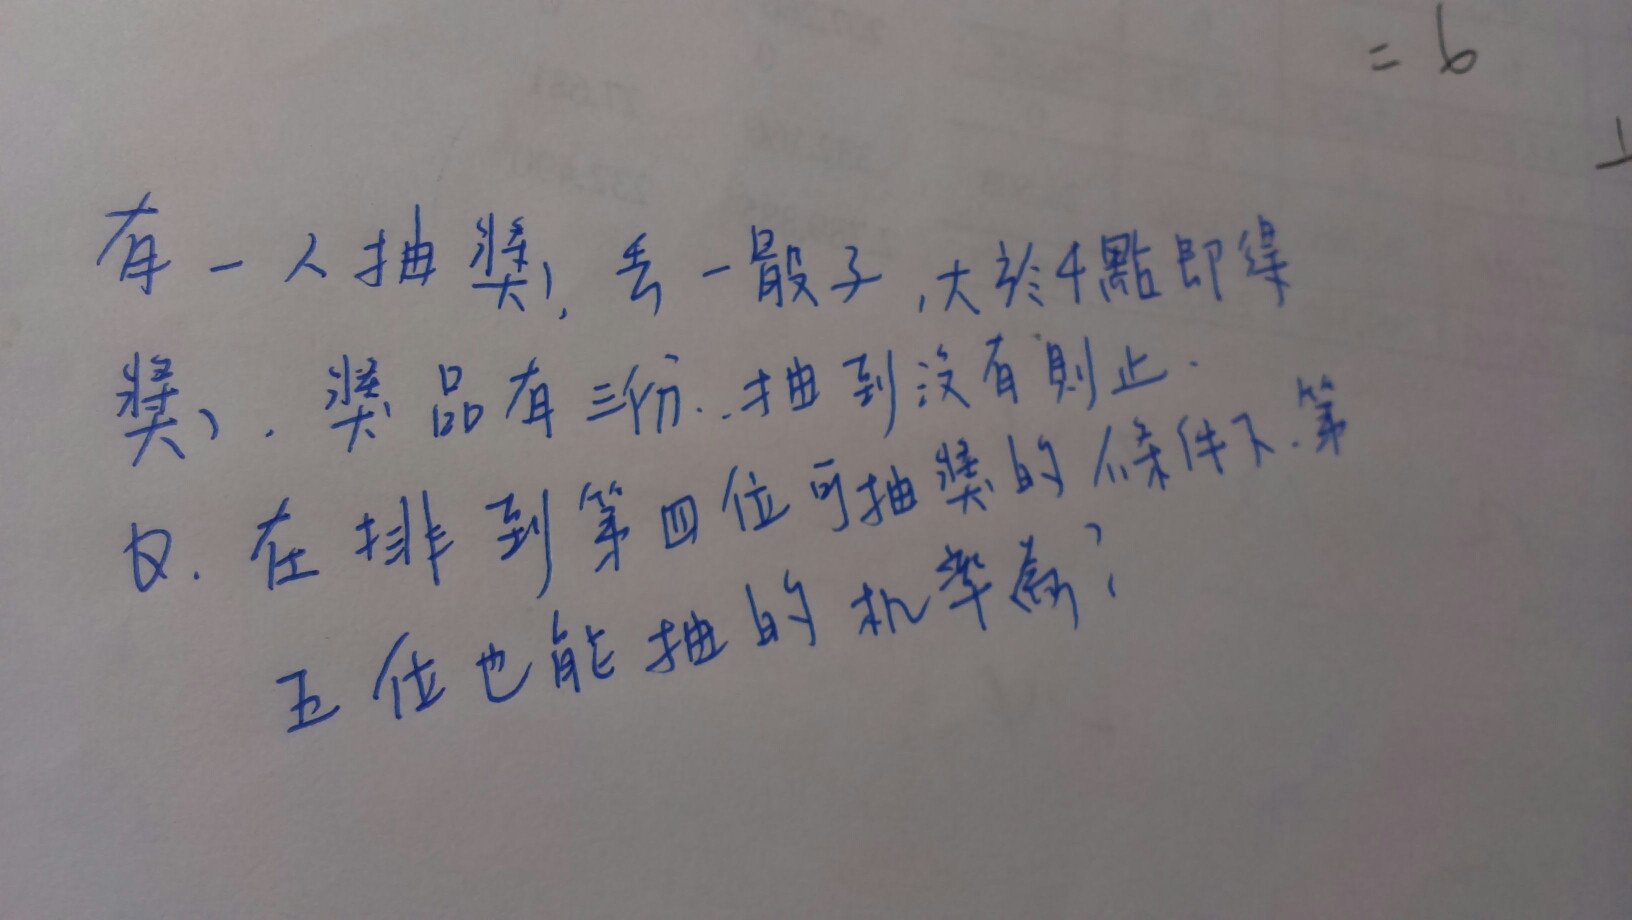 = 6
有一人抽獎, 丟一骰子, 大於4點即得
獎). 獎品有三份..抽到沒有則止.
Q. 在排到第四位可抽獎的條件下.第
五位也能抽的机率為?